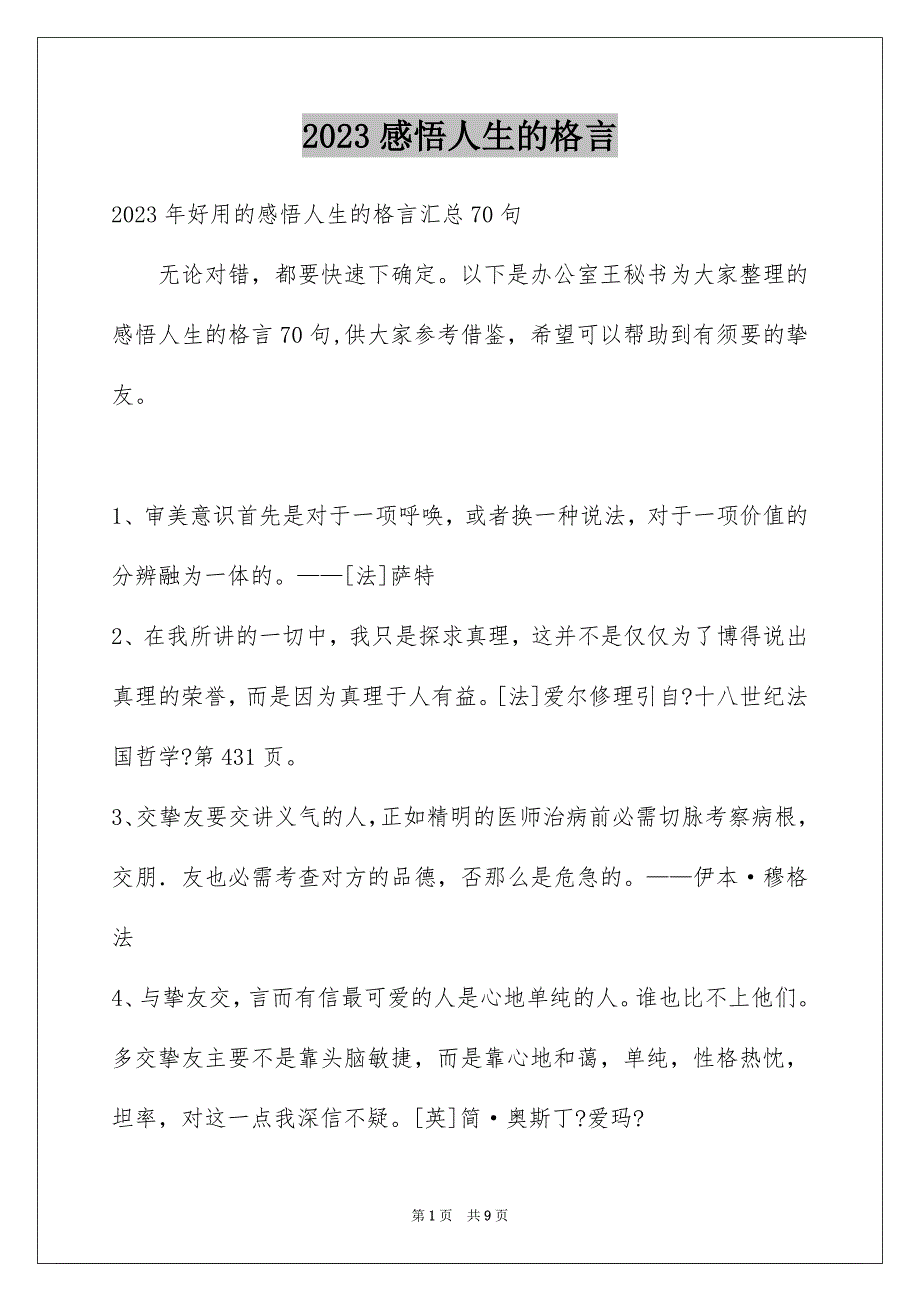 2023感悟人生的格言
2023年好用的感悟人生的格言汇总70句
无论对错，都要快速下确定。以下是办公室王秘书为大家整理的
感悟人生的格言70句,供大家参考借鉴，希望可以帮助到有须要的挚
友。
1、审美意识首先是对于一项呼唤，或者换一种说法，对于一项价值的
分辨融为一体的。——[法]萨特
2、在我所讲的一切中，我只是探求真理，这并不是仅仅为了博得说出
真理的荣誉，而是因为真理于人有益。[法]爱尔修理引自?十八世纪法
国哲学?第431页。
3、交挚友要交讲义气的人，正如精明的医师治病前必需切脉考察病根，
交朋．友也必需考查对方的品德，否那么是危急的。——伊本·穆格
法
4、与挚友交，言而有信最可爱的人是心地单纯的人。谁也比不上他们。
多交挚友主要不是靠头脑敏捷，而是靠心地和蔼，单纯，性格热忱，
坦率，对这一点我深信不疑。[英]简·奥斯丁?爱玛?
第1页 共9页